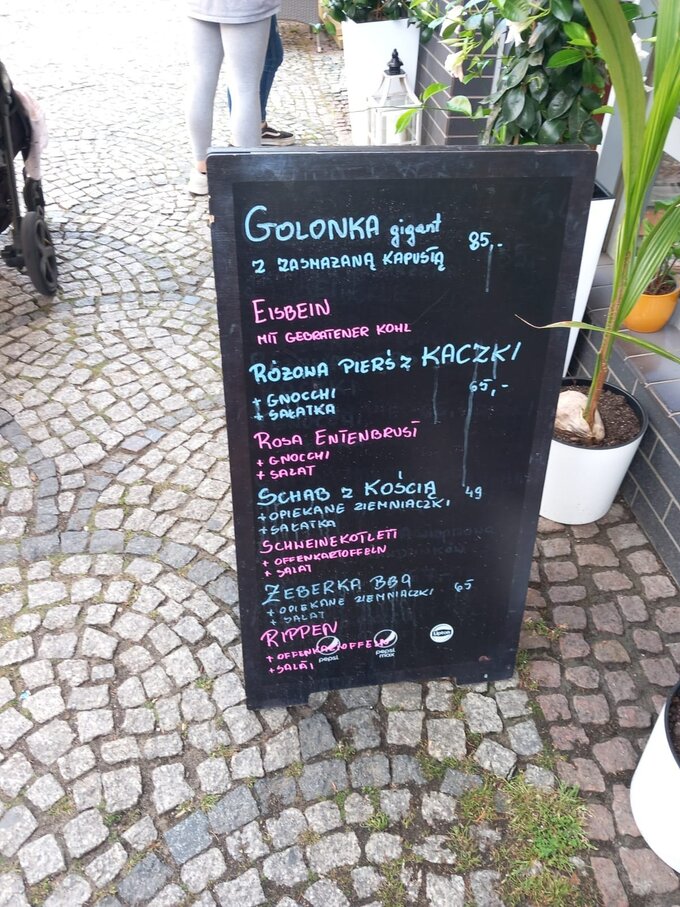 GOLONKA gigant 85,-
Z ZASMAŻANĄ KAPUSTĄ
EISBEIN
MIT GEBRATENER KOHL
RÓŻOWA PIERŚ Z KACZKI
+ GNOCCHI 65,-
+ SAŁATKA
ROSA ENTENBRUST
+ GNOCCHI
+ SALAT
SCHAB Z KOŚCIĄ 49
+ OPIEKANE ZIEMNIACZKI
+ SAŁATKA
SCHWEINEKOTLETT
+ OFFENKARTOFFELN
+ SALAT
ŻEBERKA BBQ 65
+ OPIEKANE ZIEMNIACZKI
+ SALAT
RIPPEN
+ OFFENKARTOFFELN
+ SALAT
pepsi pepsi max Lipton